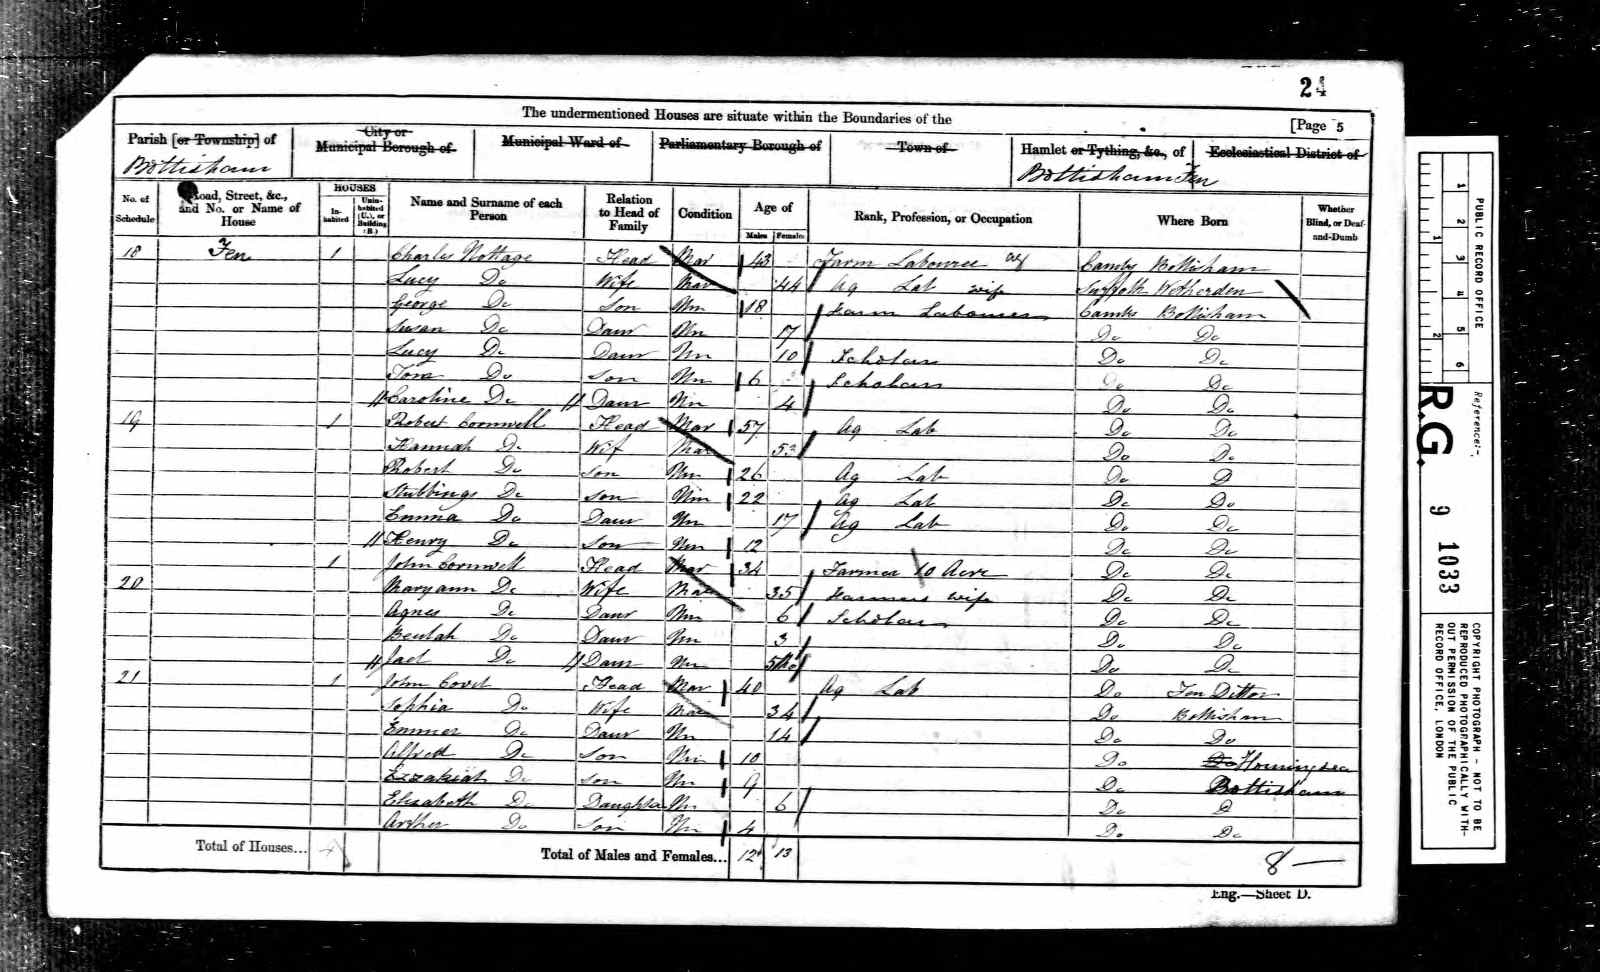 24
The undermentioned Houses are situate within the Boundaries of the
[Page 5
Parish [or Township] of
Bottisham
City or Municipal Borough of
Municipal Ward of
Parliamentary Borough of
Town of
Hamlet or Tything, &c., of
Bottisham Fen
Ecclesiastical District of
No. of Schedule
Road, Street, &c., and No. or Name of House
HOUSES
In-habited
Unin-habited (U.), or Building (B.)
Name and Surname of each Person
Relation to Head of Family
Condition
Age of
Males Females
Rank, Profession, or Occupation
Where Born
Whether Blind, or Deaf-and-Dumb
18 Fen 1 Charles Nottage Head Mar 43 Farm Labourer Cambs Bottisham
Lucy Do Wife Mar 44 Ag Lab wife Suffolk Wetherden
George Do Son Un 18 Farm Labourer Cambs Bottisham
Susan Do Daur Un 17 Do Do
Lucy Do Daur Un 10 Scholar Do Do
Tom Do Son Un 6 Scholar Do Do
Caroline Do Daur Un 4 Do Do
19 1 Robert Cornwell Head Mar 57 Ag Lab Do Do
Hannah Do Wif Mar 53 Do Do
Robert Do Son Un 26 Ag Lab Do D
Stubbings Do Son Un 22 Ag Lab Do Do
Emma Do Daur Un 17 Ag Lab Do Do
Henry Do Son Un 12 Do Do
1 John Cornwell Head Mar 34 Farmer 10 Acre Do Do
20 Maryann Do Wife Mar 35 Farmers wife Do Do
Agnes Do Daur Un 6 Scholar Do Do
Beulah Do Daur Un 3 Do Do
Jael Do Daur Un 5Mo Do Do
21 1 John Covil Head Mar 40 Ag Lab Do Fen Ditton
Sophia Do Wife Mar 34 Do Bottisham
Emmer Do Daur Un 14 Do Do
Alfred Do Son Un 10 Do Do Horningsea
Ezzakiah Do Son Un 9 Do Bottisham
Elizabeth Do Daughter Un 6 Do D
Arther Do Son Un 4 Do Do
Total of Houses...
4
Total of Males and Females...
12 13
8
Eng.—Sheet D.
PUBLIC RECORD OFFICE
1 2 3 4 5 6
1 2
Reference:-
R.G. 9 1033
COPYRIGHT PHOTOGRAPH - NOT TO BE
REPRODUCED PHOTOGRAPHICALLY WITH-
OUT PERMISSION OF THE PUBLIC
RECORD OFFICE, LONDON